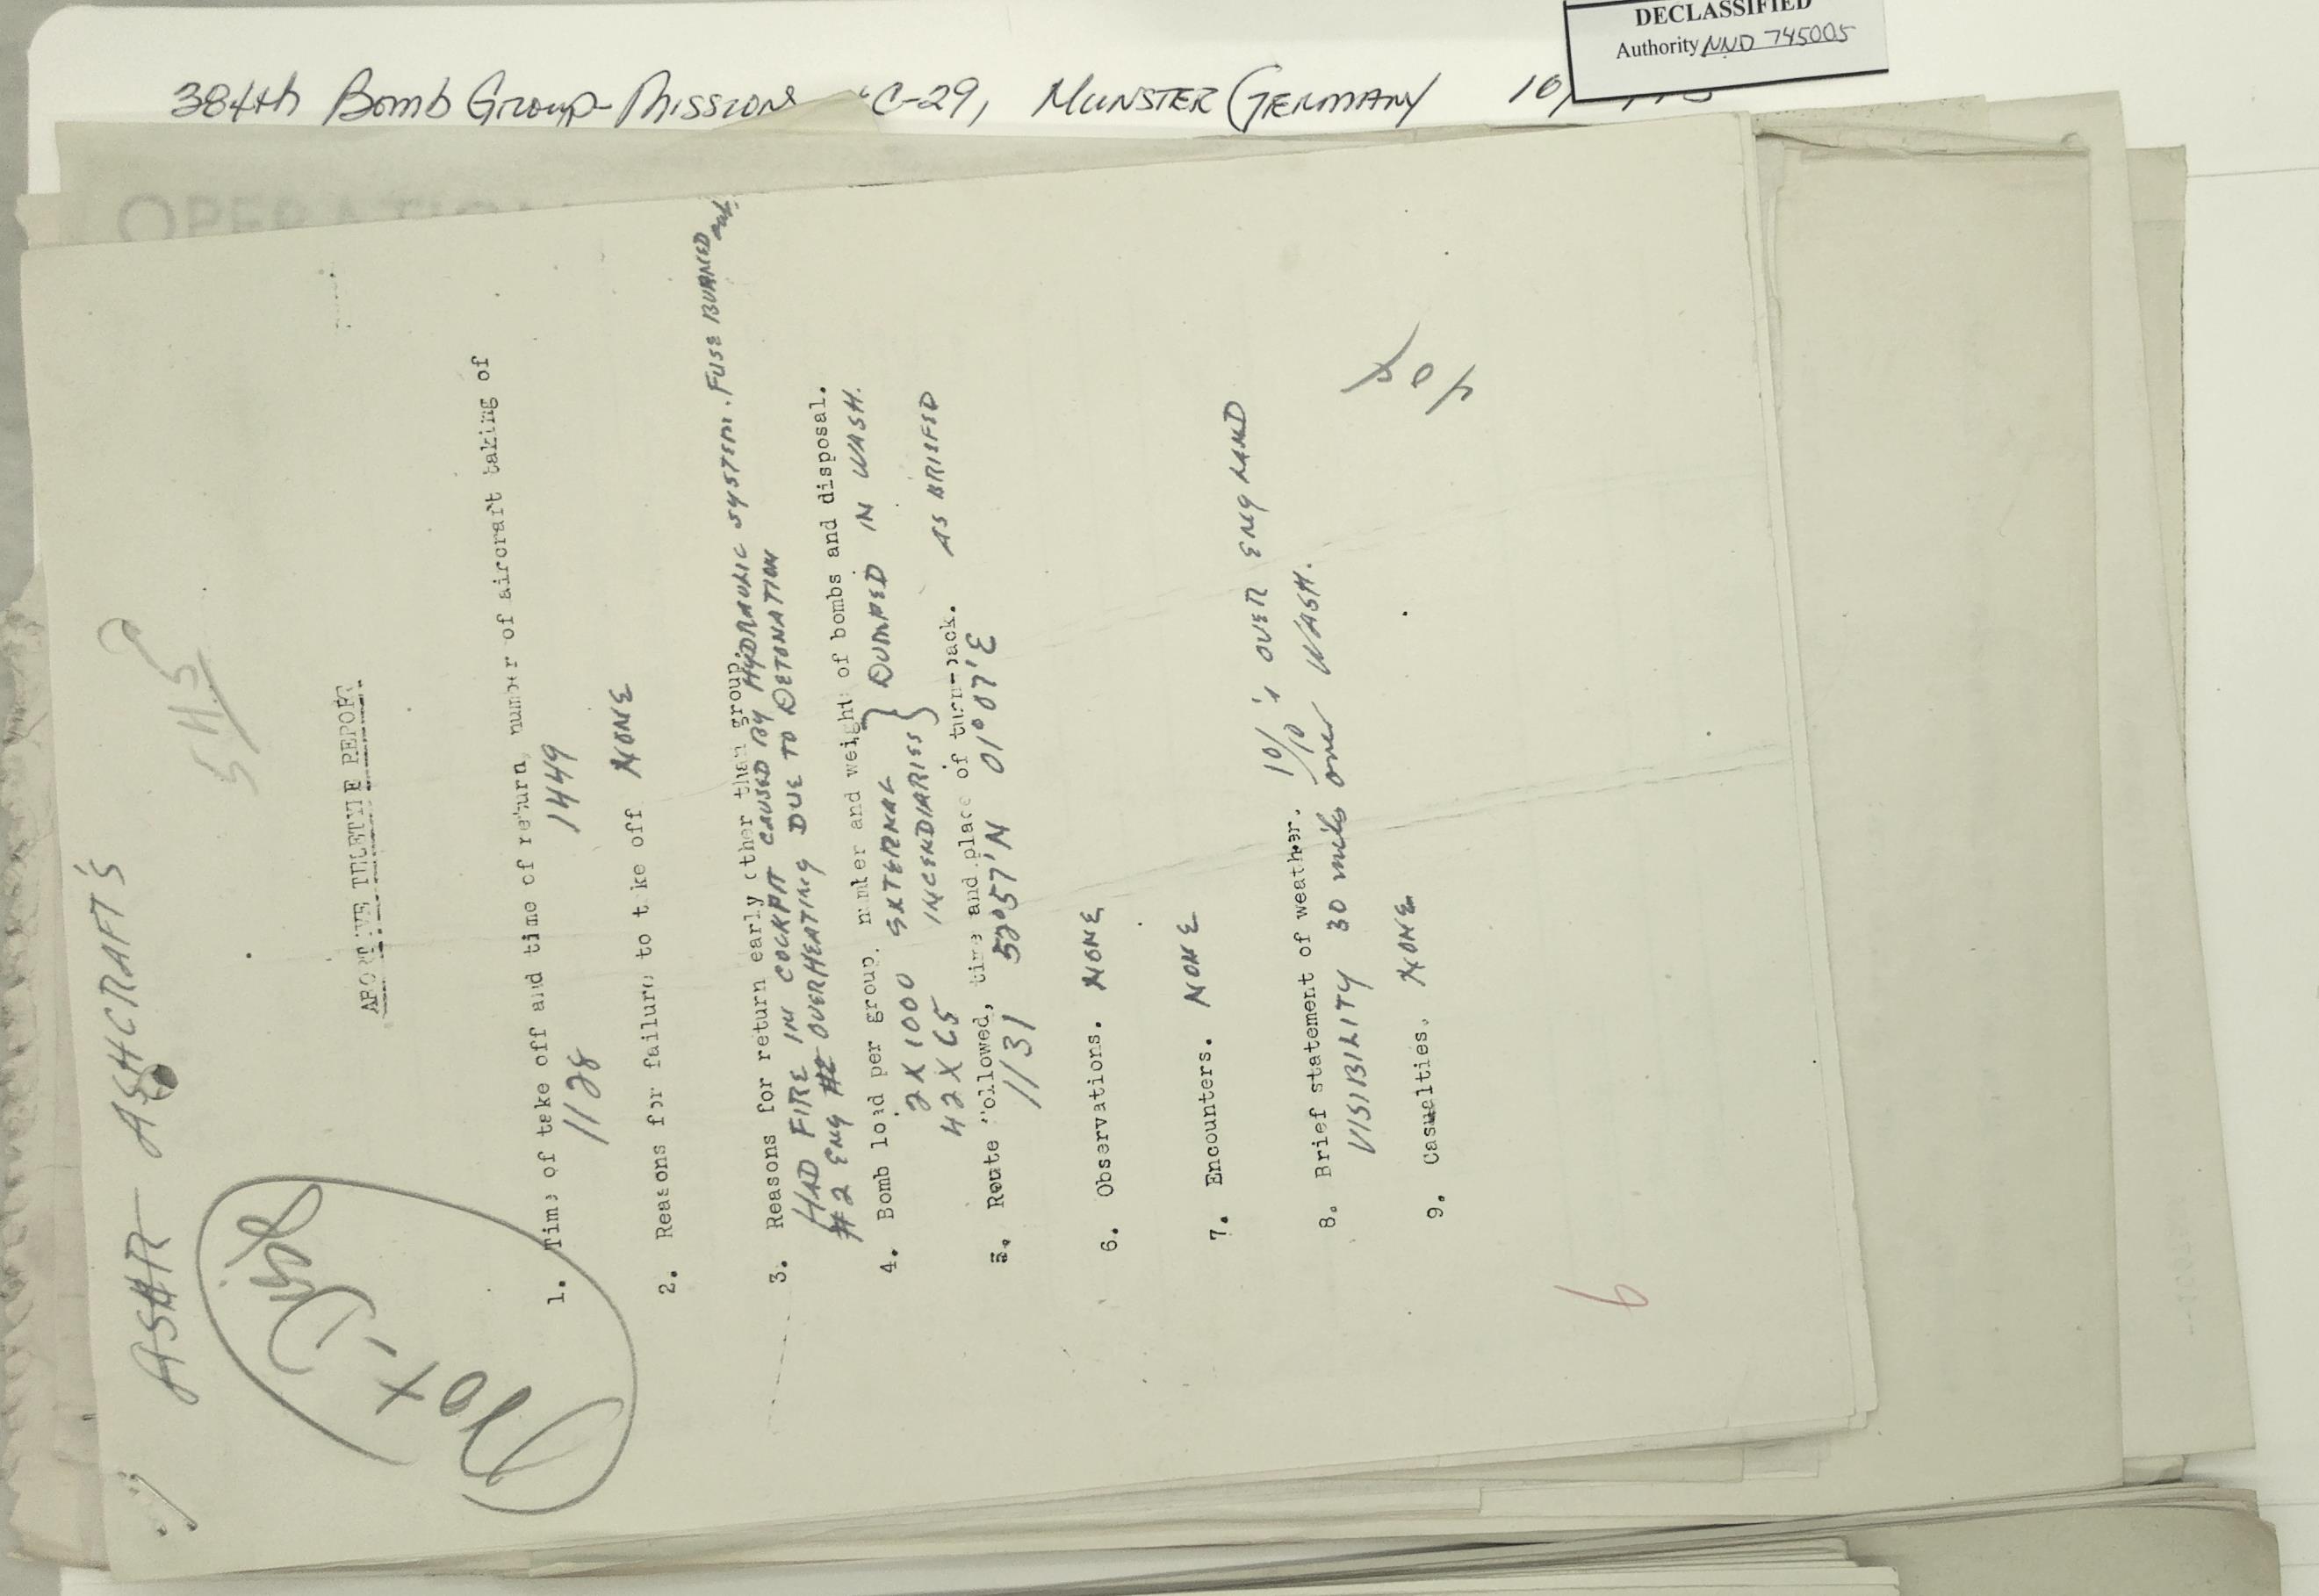 DECLASSIFIED
Authority NND 745005
384th Bomb Group - Mission C-29, MUNSTER GERMANY 10/
OPERATION
ASHCRAFT'S
5 H.S
ABORTIVE TELETYPE REPORT
1. Time of take off and time of return, number of aircraft taking of
1128 1449
2. Reasons for failure to take off NONE
3. Reasons for return early other than group.
HAD FIRE IN COCKPIT CAUSED BY HYDRAULIC SYSTEM. FUSE BURNED out.
#2 ENG OVERHEATING DUE TO DETONATION
4. Bomb load per group, number and weight of bombs and disposal.
2 X 1000 EXTERNAL } DUMPED IN WASH.
42 X 65 INCENDIARIES
5. Route followed, time and place of turn-back. AS BRIEFED
1131 52°57'N 01°07'E
6. Observations. NONE
7. Encounters. NONE
8. Brief statement of weather. 10/10's OVER ENGLAND
VISIBILITY 30 miles over WASH.
9. Casualties. NONE